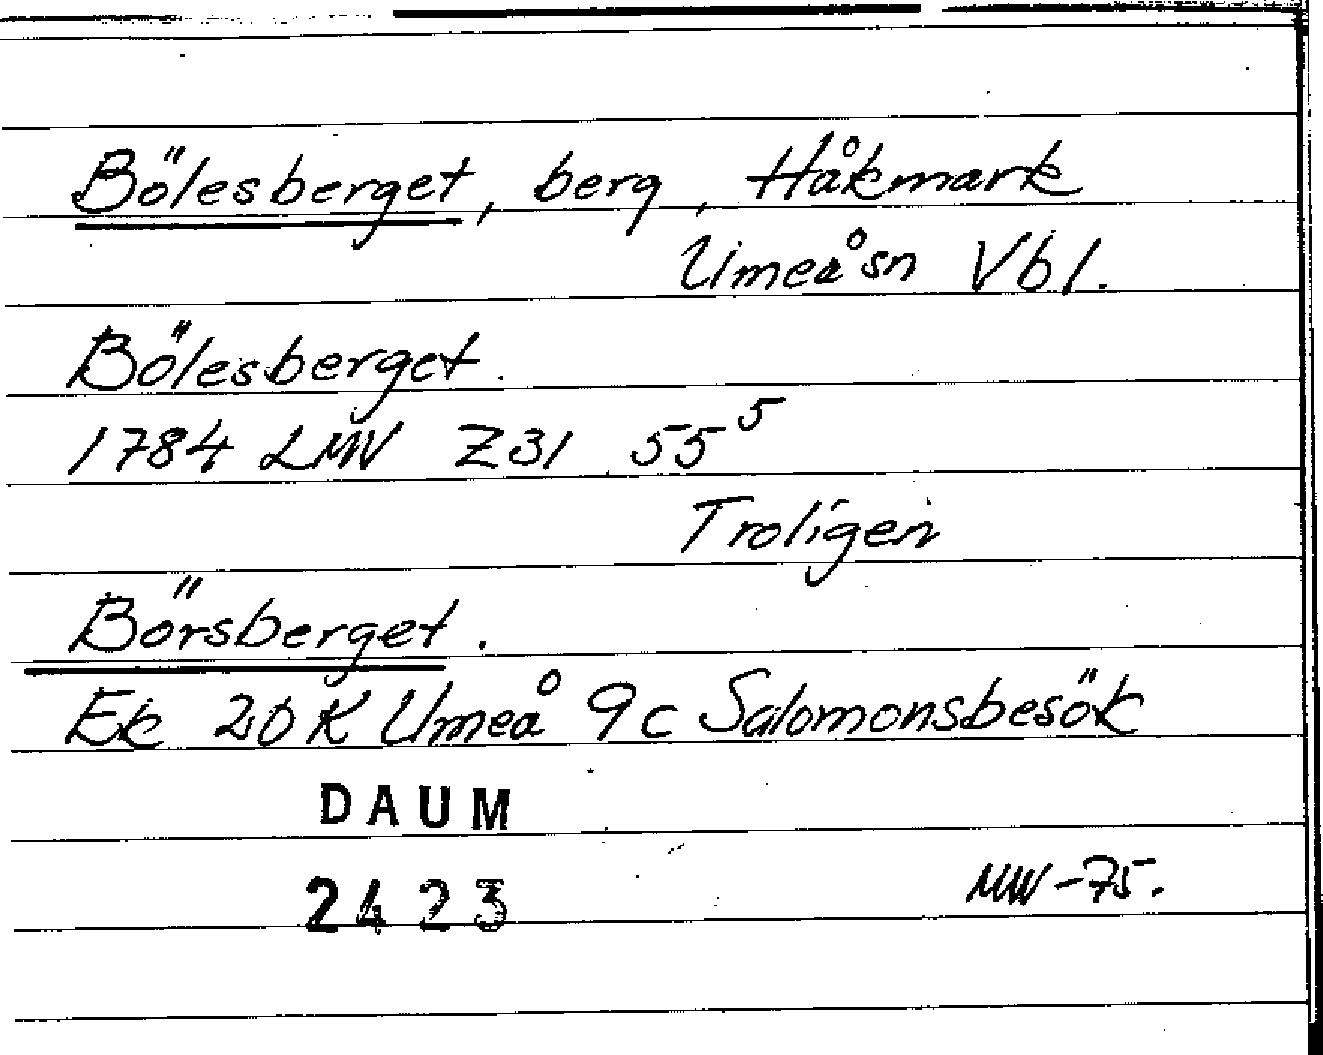 Bölesberget, berg, Håkmark
Umeå sn Vbl.
Bölesberget.
1784 LMV Z31 55⁵
Troligen
Börsberget.
Ek 20K Umeå 9c Salomonsbesök
DAUM
2423
MW-75.